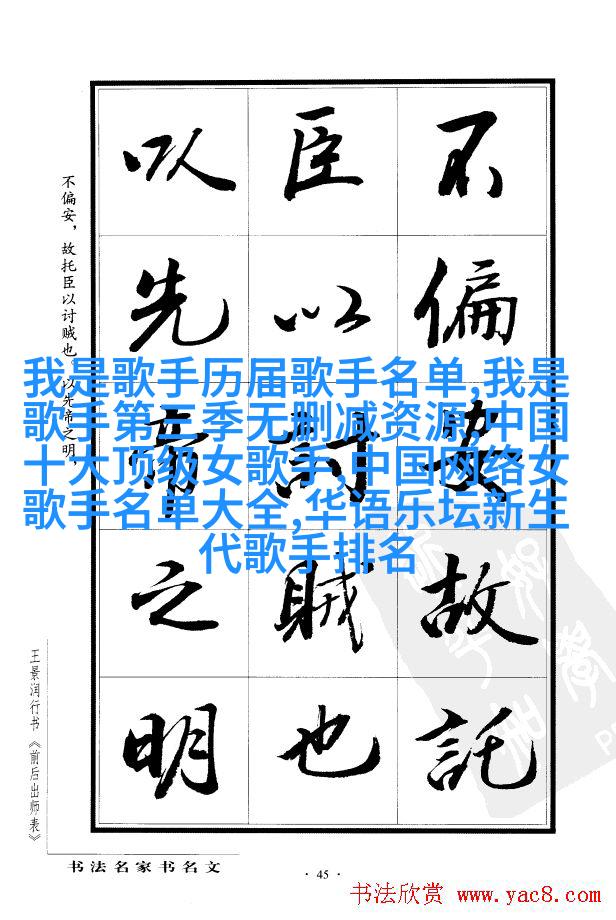 不偏安故託
臣以討賊也
以先帝之明
不偏安，故托臣以讨贼也。以先帝之明，
我是歌手历届歌手名单,我是
歌手第三季无删减资源,中国
十大顶级女歌手,中国网络女
歌手名单大全,华语乐坛新生
代歌手排名
王景润行书《前后出师表》
书法名家书名文
·45·
书法欣赏 www.yac8.com